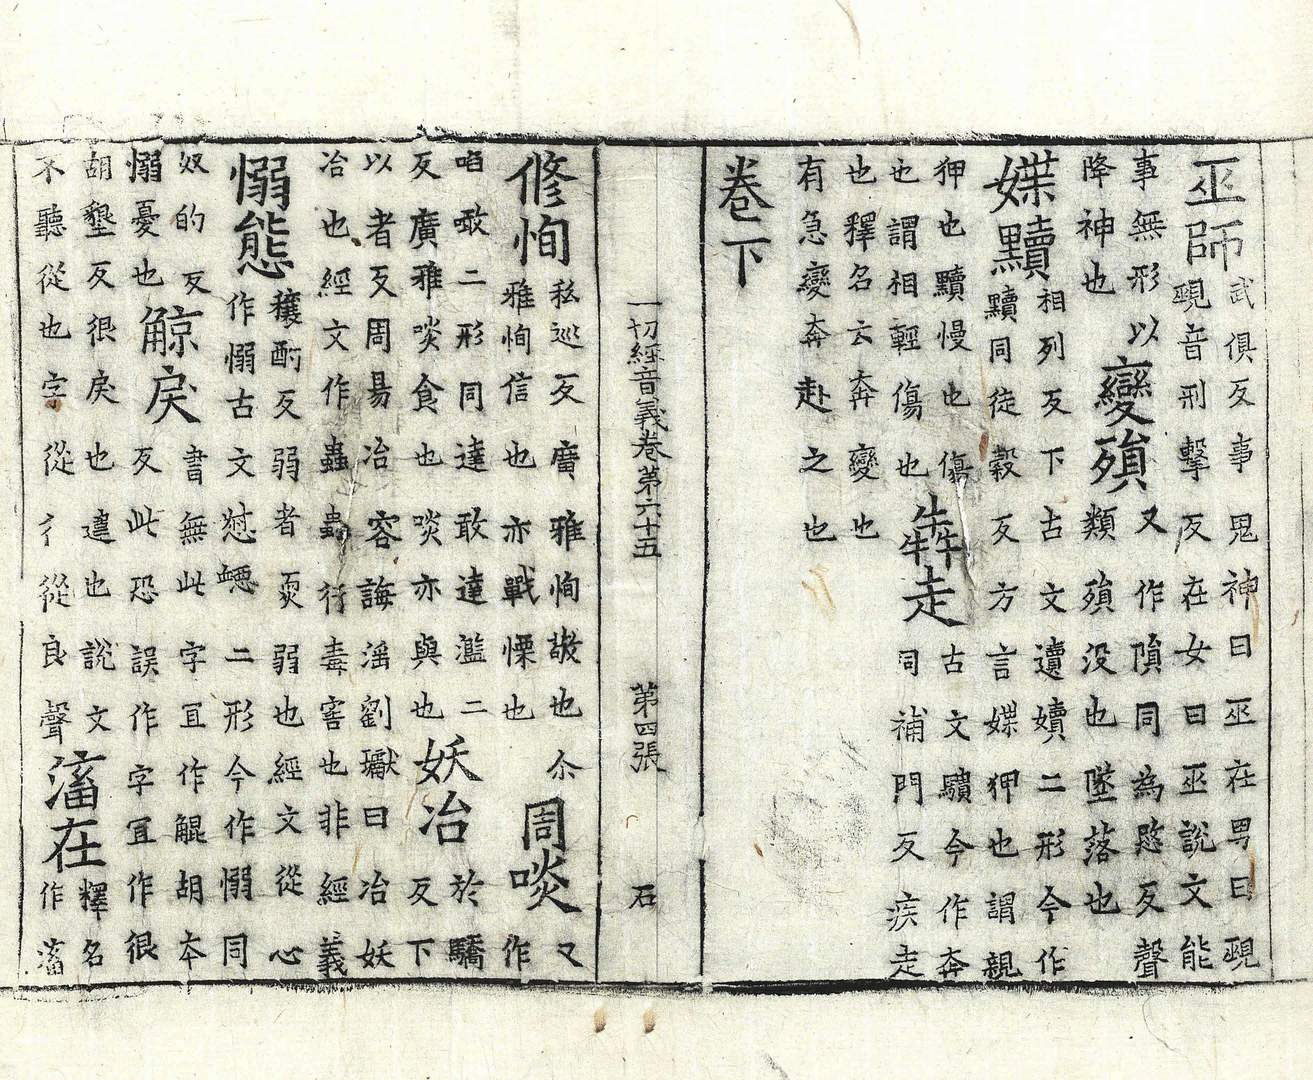 巫師武俱反事鬼神曰巫在男曰覡覡音刑擊反在女曰巫說文能
事無形以降神也變殞又作隕同為愍反聲類殞没也墜落也
媟黷相列反下古文遺嬻二形今作黷同徒穀反方言媟狎也謂親
狎也黷慢也傷也謂相輕傷也犇走古文今作奔同補門反疾走
也釋名云奔變也有急變奔赴之也
卷下
一切經音義卷第六十五 第四張 石
修恂私巡反廣雅恂敬也尒雅恂信也亦戰慄也周啖又作
啗噉二形同達敢達濫二反廣雅啖食也啖亦與也妖冶於驕反下
以者反周易冶容誨滛劉瓛曰冶妖冶也經文作蟲蠱行毒害也非經義
愵態穰酌反弱者耎弱也經文從心作愵古文二形今作愵同
奴的反愵憂也鯨戾書無此字冝作鯤胡本反此恐誤作字冝作很
胡墾反很戾也違也說文不聽從也字從彳從良聲滀在釋名作滀